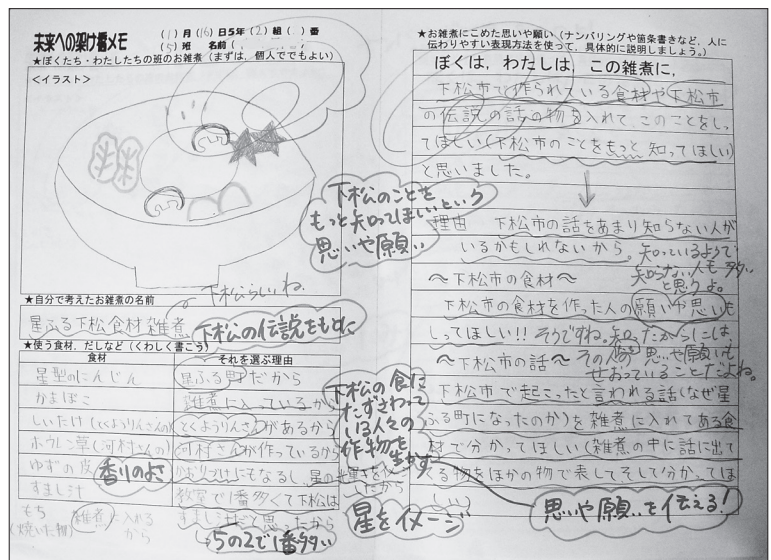 未来への架け橋メモ
(1)月(16)日5年(2)組( )番
(5)班 名前(
★ぼくたち・わたしたちの班のお雑煮(まずは,個人ででもよい)
<イラスト>
下松らしいね。
★自分で考えたお雑煮の名前
星ふる下松食材雑煮
下松の伝説をもとに
★使う食材,だしなど(くわしく書こう)
食材
それを選ぶ理由
星型のにんじん
星ふる町だから
かまぼこ
雑煮に入っているから
しいたけ(とくようりんさんの)
とくようりんさんがあるから
ホウレン草(河村さんの)
河村さんが作っているから
ゆずの皮
香りのよさ
かおりづけにもなるし,星の
したから
すまし汁
教室で1番多くて下松は
すまし汁だと思ったから
もち
(焼いた
雑煮に入れる
から
5の2で1番多い
★お雑煮にこめた思いや願い(ナンバリングや箇条書きなど,人に
伝わりやすい表現方法を使って,具体的に説明しましょう。)
ぼくは,わたしは,この雑煮に,
下松市で作られている食材や下松市
の伝説の話の物を入れて,このことをしっ
てほしい(下松市のことをもっと知ってほしい)
と思いました。
下松のことを
もっと知ってほしいという
思いや願い
理由 下松市の話をあまり知らない人が
いるかもしれないから。
知っているようで
知らない人も多い
と思うよ。
～下松市の食材～
下松市の食材を作った人の願いや思いも
しってほしい!!
そうですね。知ったからには
～下松市の話～
その思いや願いも
せおっていることだよね。
下松市で起こったと言われる話(なぜ星
ふる町になったのか)を雑煮に入れてある食
材で分かってほしい(雑煮の中に話に出て
る物をほかの物で表してそして分かってほ
しい)
下松の食に
たずさわって
いる人々の
作物を
生かす
星をイメージ
思いや願いを伝える!